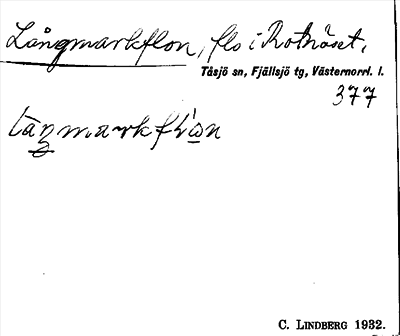 Långmarkflon, flo i Rotnäset,
Tåsjö sn, Fjällsjö tg, Västernorrl. l.
377
C. LINDBERG 1932.